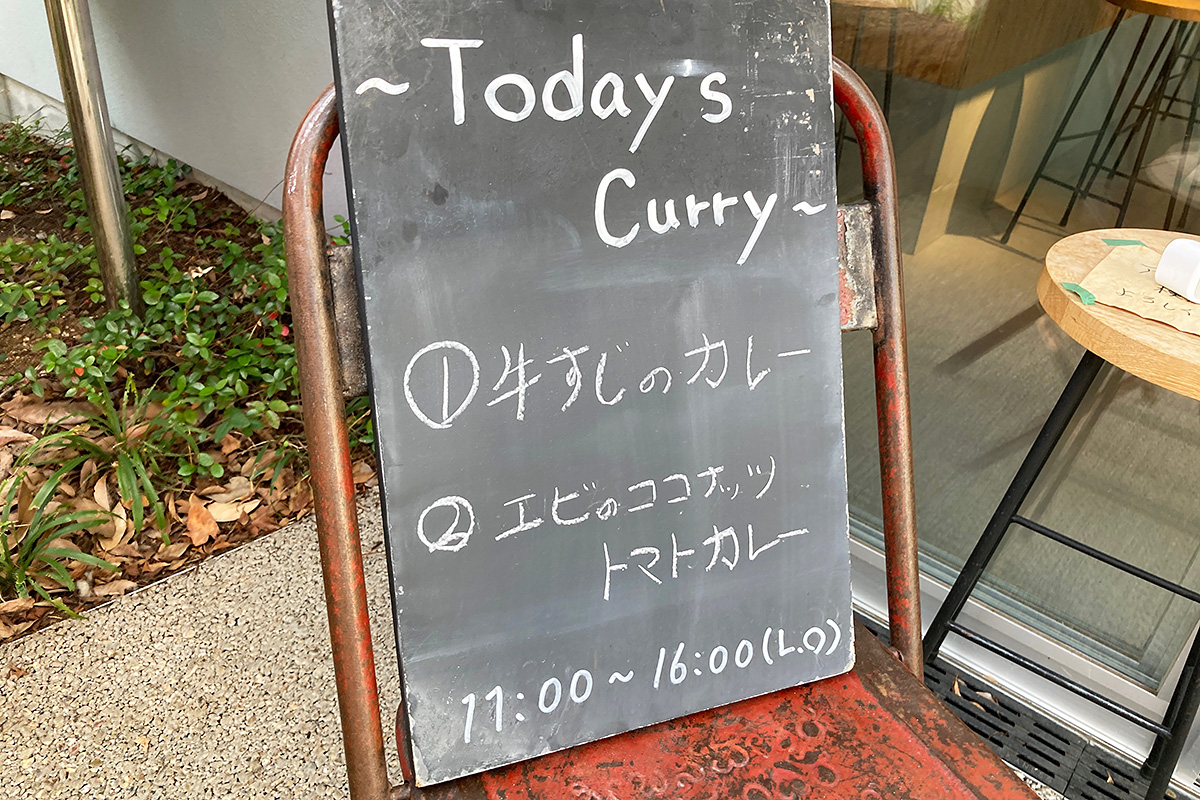 ~Today's
Curry~
①牛すじのカレー
②エビのココナッツ
トマトカレー
11:00~16:00(L.O)